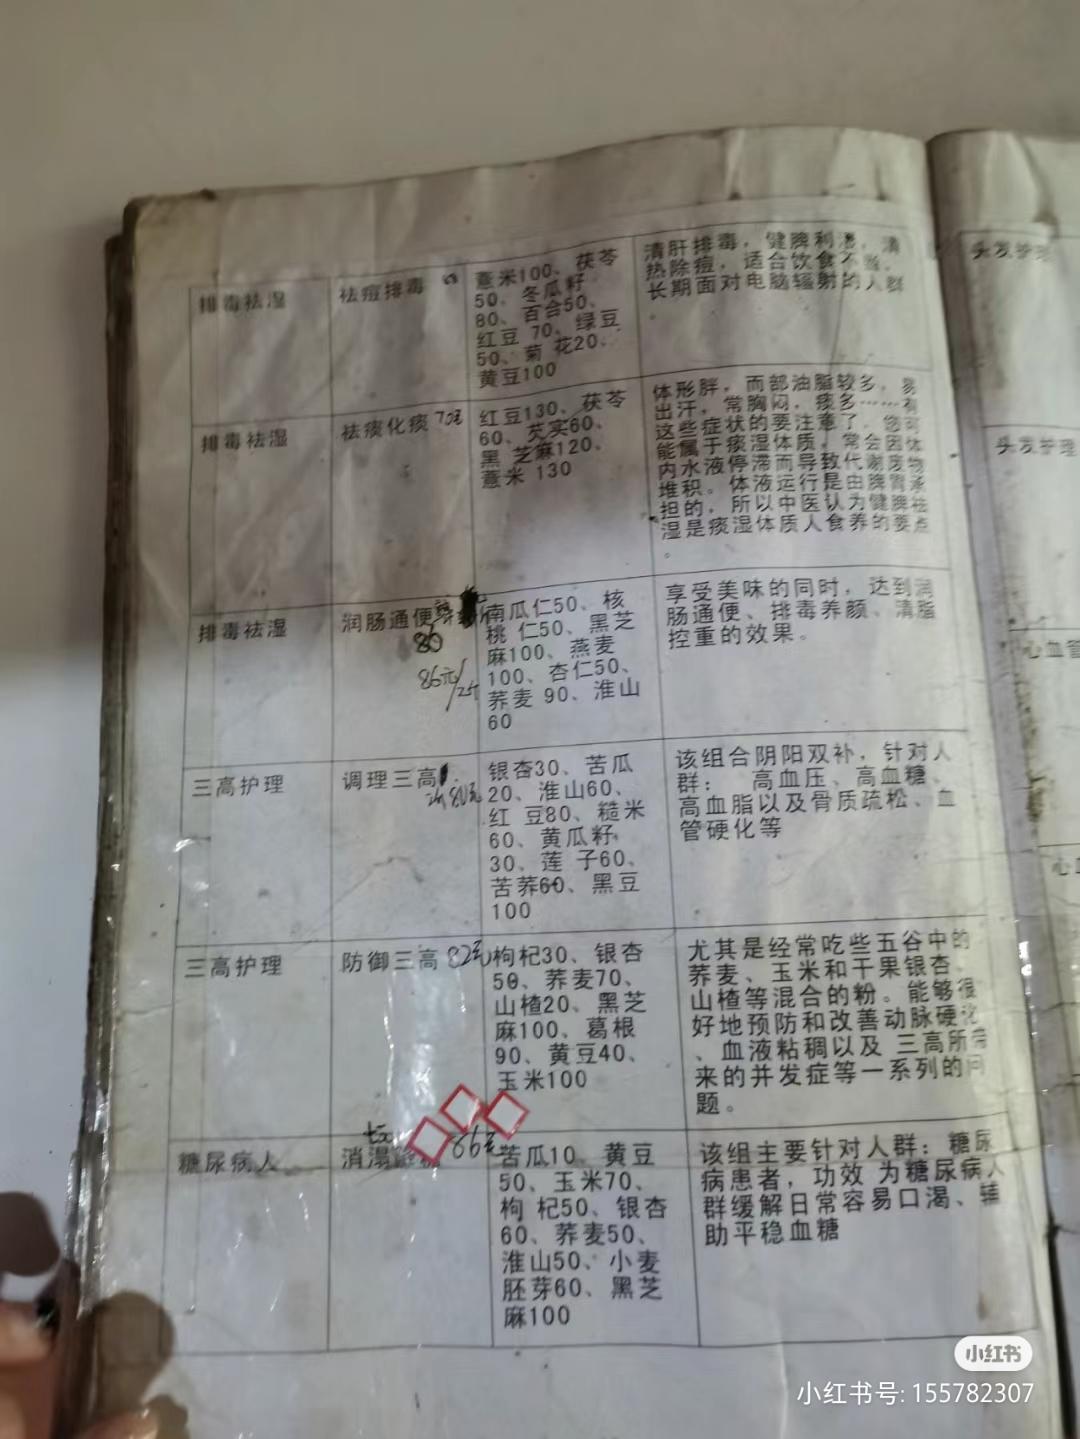 排毒祛湿
祛痘排毒
薏米100、茯苓
50、冬瓜籽
80、百合50、
红豆 70、绿豆
50、菊 花20、
黄豆100
清肝排毒，健脾利湿，清
热除痘，适合饮食不当、
长期面对电脑辐射的人群
。
排毒祛湿
祛痰化痰 70元
红豆130、茯苓
60、芡实60、
黑 芝麻120、
薏米 130
体形胖，而部油脂较多，易
出汗，常胸闷，痰多……有
这些症状的要注意了，您可
能属于痰湿体质，常会因体
内水液停滞而导致代谢废物
堆积。体液运行是由脾胃承
担的，所以中医认为健脾祛
湿是痰湿体质人食养的要点
。
排毒祛湿
润肠通便
86
86元/2斤
南瓜仁50、核
桃 仁50、黑芝
麻100、燕麦
100、杏仁50、
荞麦 90、淮山
60
享受美味的同时，达到润
肠通便、排毒养颜、清脂
控重的效果。
三高护理
调理三高
80元
银杏30、苦瓜
20、淮山60、
红 豆80、糙米
60、黄瓜籽
30、莲 子60、
苦荞60、黑豆
100
该组合阴阳双补，针对人
群： 高血压、高血糖、
高血脂以及骨质疏松、血
管硬化等
三高护理
防御三高 82元
枸杞30、银杏
50、荞麦70、
山楂20、黑芝
麻100、葛根
90、黄豆40、
玉米100
尤其是经常吃些五谷中的
荞麦、玉米和干果银杏、
山楂等混合的粉。能够很
好地预防和改善动脉硬化
、血液粘稠以及 三高所带
来的并发症等一系列的问
题。
糖尿病人
消渴 86元
苦瓜10、黄豆
50、玉米70、
枸 杞50、银杏
60、荞麦50、
淮山50、小麦
胚芽60、黑芝
麻100
该组主要针对人群：糖尿
病患者，功效 为糖尿病人
群缓解日常容易口渴、辅
助平稳血糖
头发护理
头发护理
心血管
心血
小红书
小红书号: 155782307